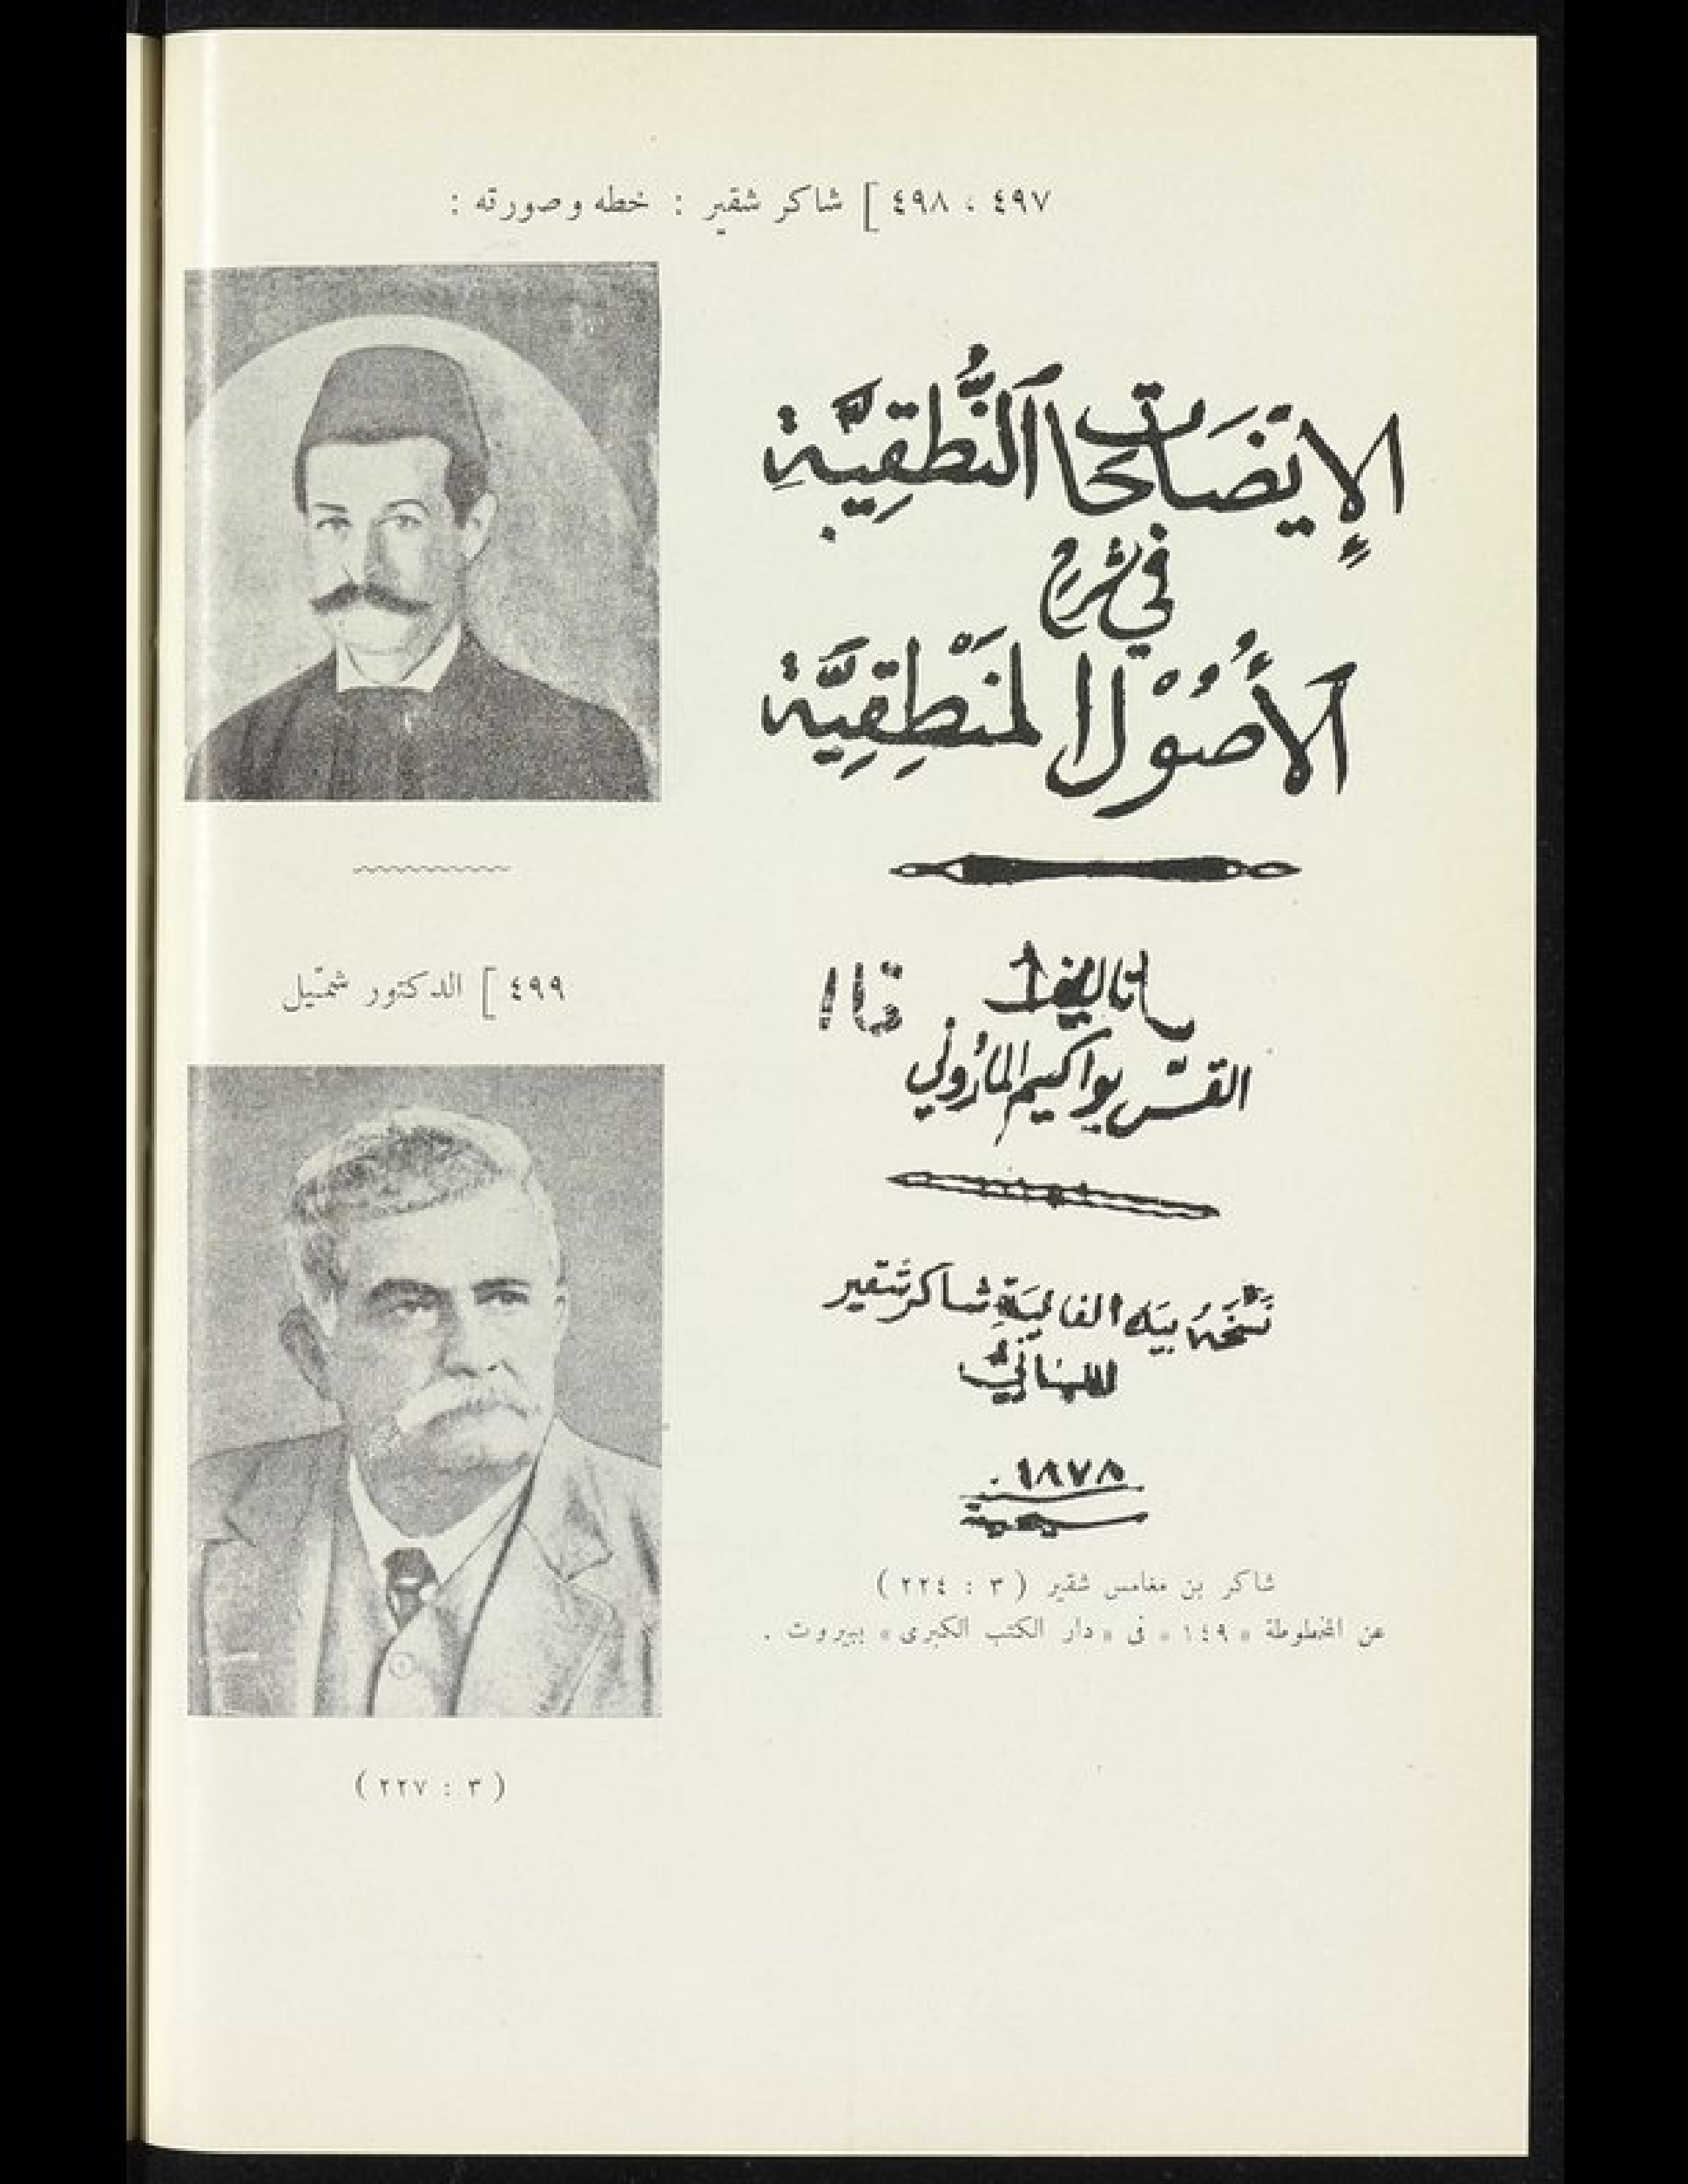 ٤٩٧ ، ٤٩٨ [ شاكر شقير : خطه وصورته :
الإيضَاحَات النُّطقِيَّةِ
في شرح
الأُصُوْل المَنْطِقِيَّة
تاليف
القسّ يواكيم المارُوني
بيَد الفانيَة شاكر شقير
اللبناني
١٨٧٨
مسيحية
شاكر بن مغامس شقير ( ٣ : ٢٢٤ )
عن المخطوطة « ١٤٩ » في « دار الكتب الكبرى » ببيروت .
٤٩٩ [ الدكتور شميّل
( ٣ : ٢٢٧ )